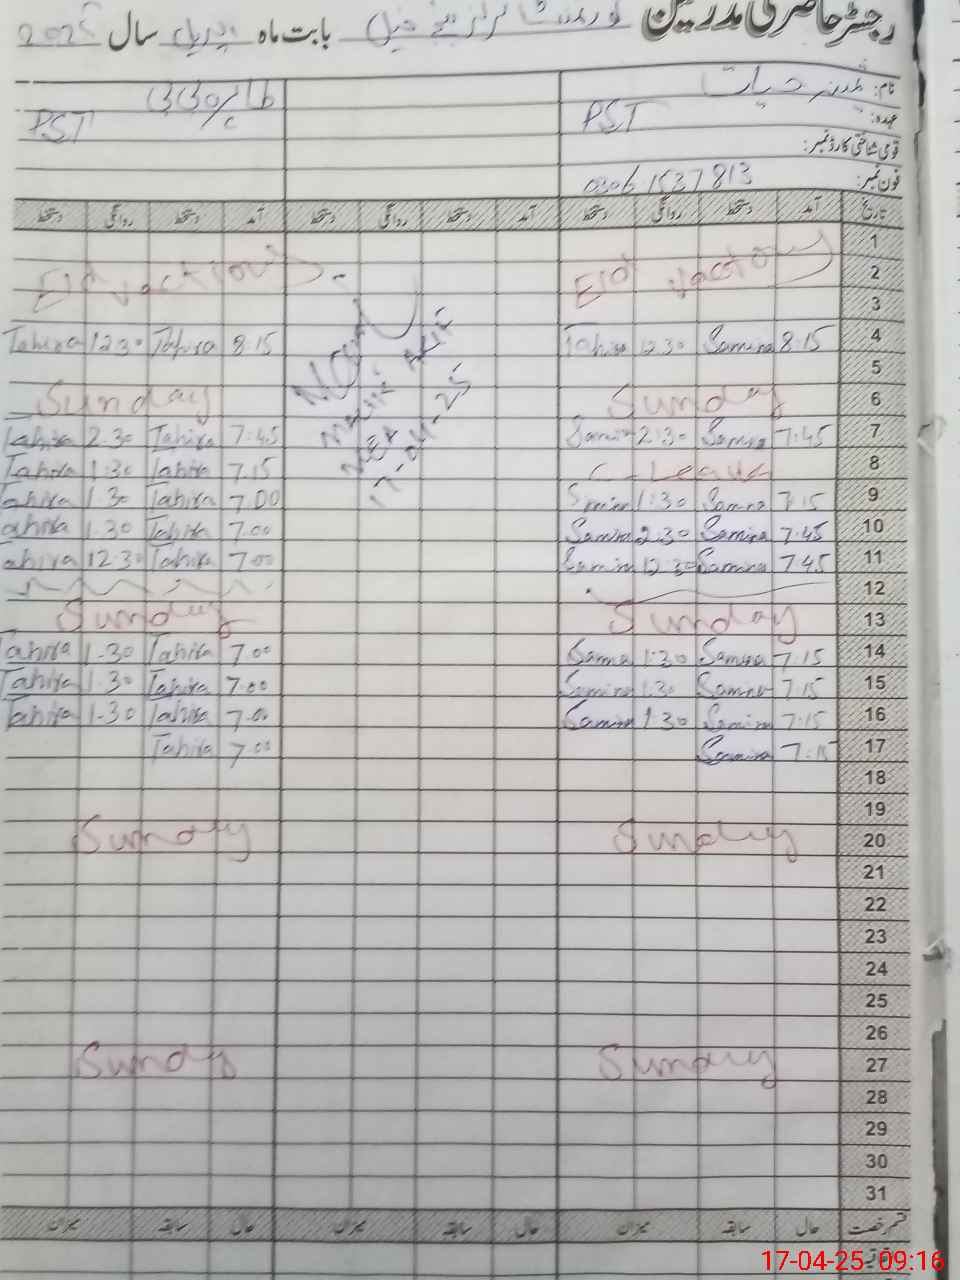 رجسٹر حاضری مدرسین بابت ماہ اپریل سال 2025
نام: ثمینہ حیات
عہدہ: PST PST
قومی شناختی کارڈ نمبر:
فون نمبر: 0306 1537813
تاریخ آمد دستخط روانگی دستخط آمد دستخط روانگی دستخط آمد دستخط روانگی دستخط
1
Eid vactions Eid vactions 2
3
Tahira 12:30 Tahira 8:15 Tahira 12:30 Samina 8:15 4
5
Sunday Sunday 6
Tahira 2.30 Tahira 7:45 Samina 2:30 Samina 7:45 7
Tahira 1:30 Tahira 7.15 C-Leave 8
Tahira 1.30 Tahira 7.00 Samina 1:30 Samina 7:15 9
Tahira 1.30 Tahira 7.00 Samina 2:30 Samina 7:45 10
Tahira 12:30 Tahira 7.00 Samina 12:30 Samina 7:45 11
12
Sunday Sunday 13
Tahira 1.30 Tahira 7.00 Samina 1:30 Samina 7:15 14
Tahira 1.30 Tahira 7.00 Samina 1:30 Samina 7:15 15
Tahira 1-30 Tahira 7.00 Samina 1:30 Samina 7:15 16
Tahira 7.00 Samina 7:15 17
MEA
17-04-25
18
19
Sunday Sunday 20
21
22
23
24
25
26
Sunday Sunday 27
28
29
30
31
قسم رخصت حال سابقہ میزان حال سابقہ میزان حال سابقہ میزان
17-04-25 09:16